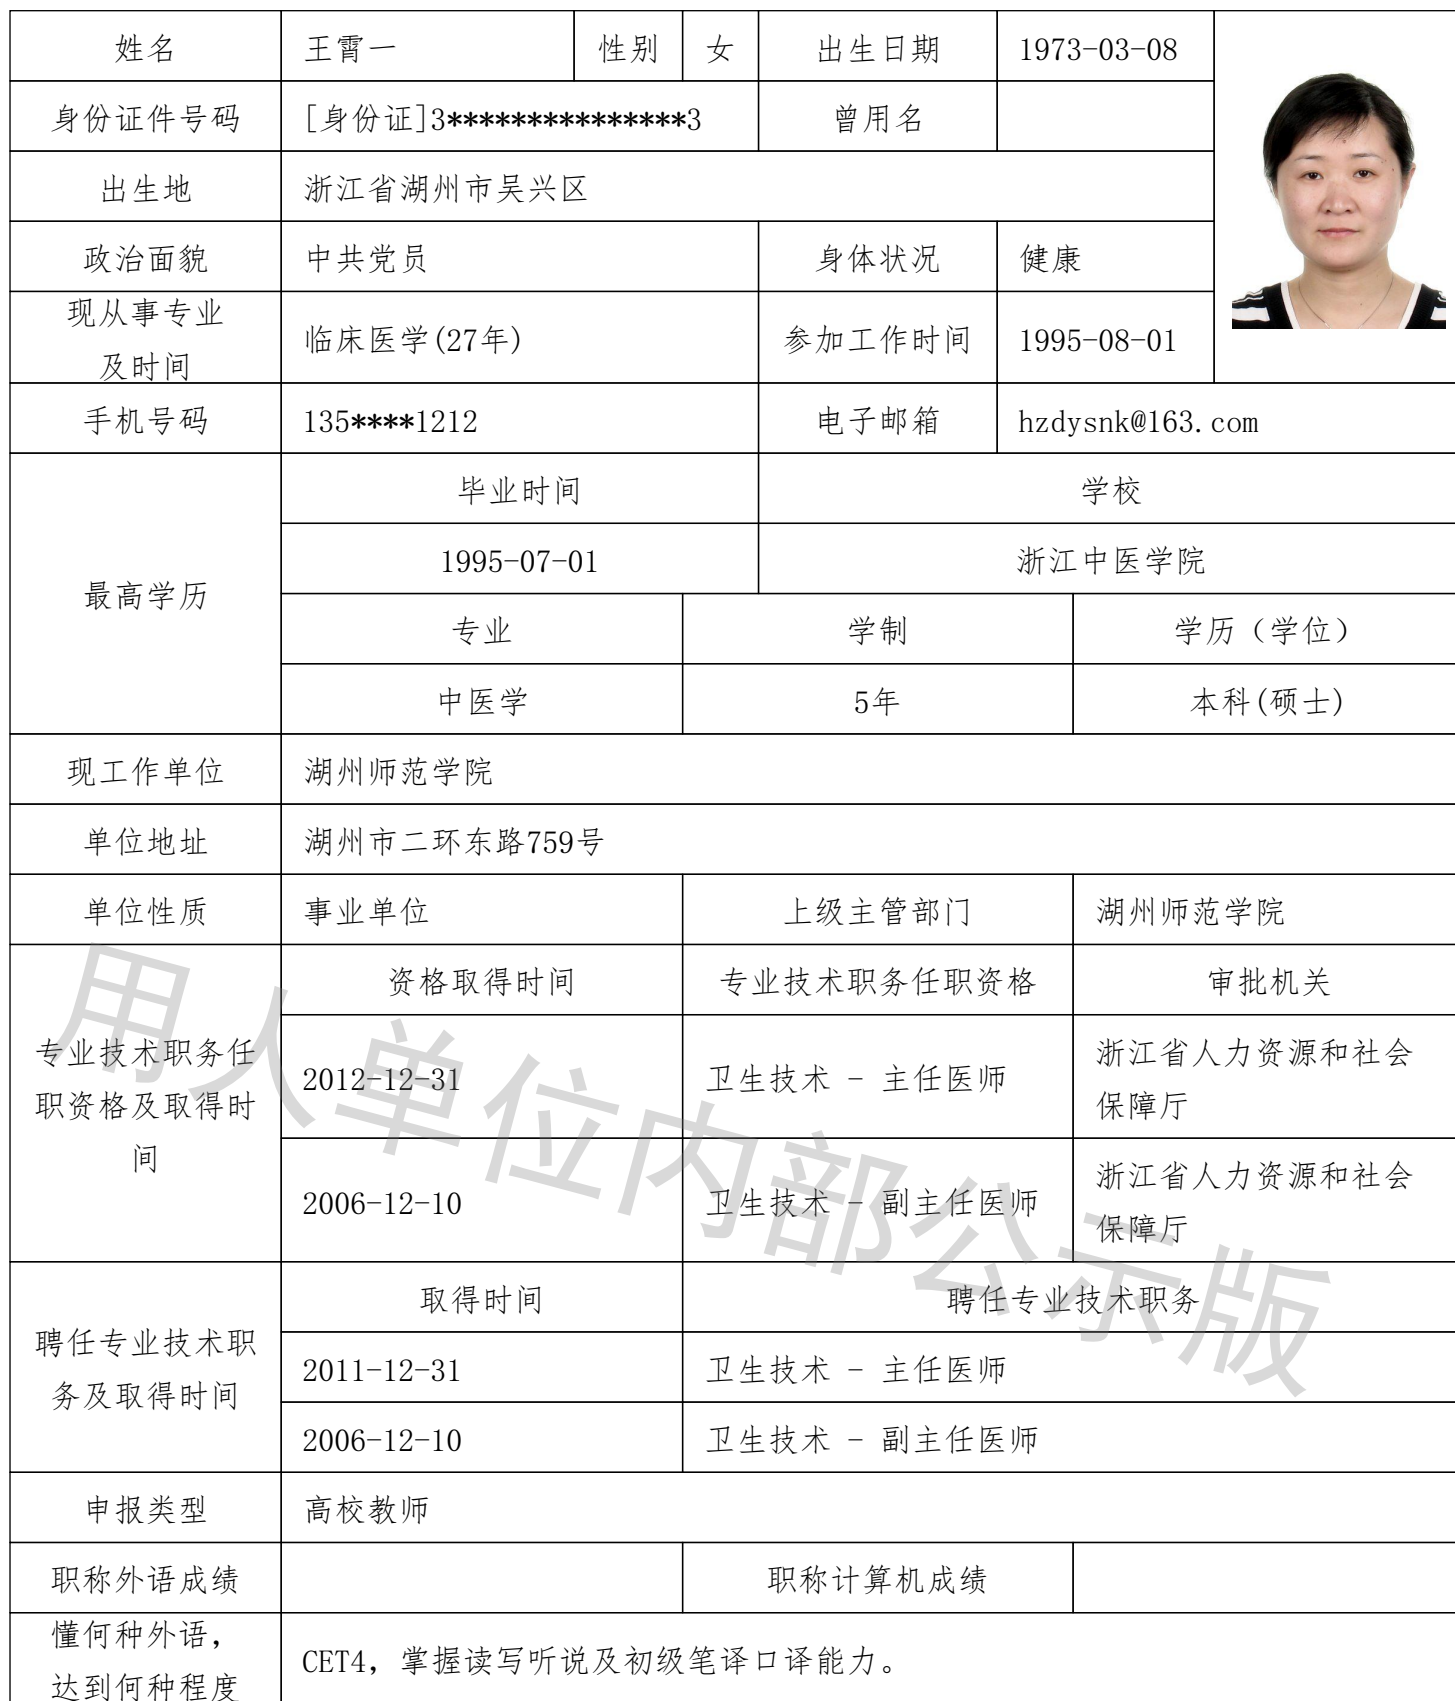 姓名 王霄一 性别 女 出生日期 1973-03-08
身份证件号码 [身份证]3***************3 曾用名
出生地 浙江省湖州市吴兴区
政治面貌 中共党员 身体状况 健康
现从事专业
及时间
临床医学(27年) 参加工作时间 1995-08-01
手机号码 135****1212 电子邮箱 hzdysnk@163.com
最高学历
毕业时间 学校
1995-07-01 浙江中医学院
专业 学制 学历（学位）
中医学 5年 本科(硕士)
现工作单位 湖州师范学院
单位地址 湖州市二环东路759号
单位性质 事业单位 上级主管部门 湖州师范学院
专业技术职务任
职资格及取得时
间
资格取得时间 专业技术职务任职资格 审批机关
2012-12-31 卫生技术 - 主任医师 浙江省人力资源和社会
保障厅
2006-12-10 卫生技术 - 副主任医师 浙江省人力资源和社会
保障厅
聘任专业技术职
务及取得时间
取得时间 聘任专业技术职务
2011-12-31 卫生技术 - 主任医师
2006-12-10 卫生技术 - 副主任医师
申报类型 高校教师
职称外语成绩 职称计算机成绩
懂何种外语，
达到何种程度
CET4，掌握读写听说及初级笔译口译能力。
用人单位内部公示版